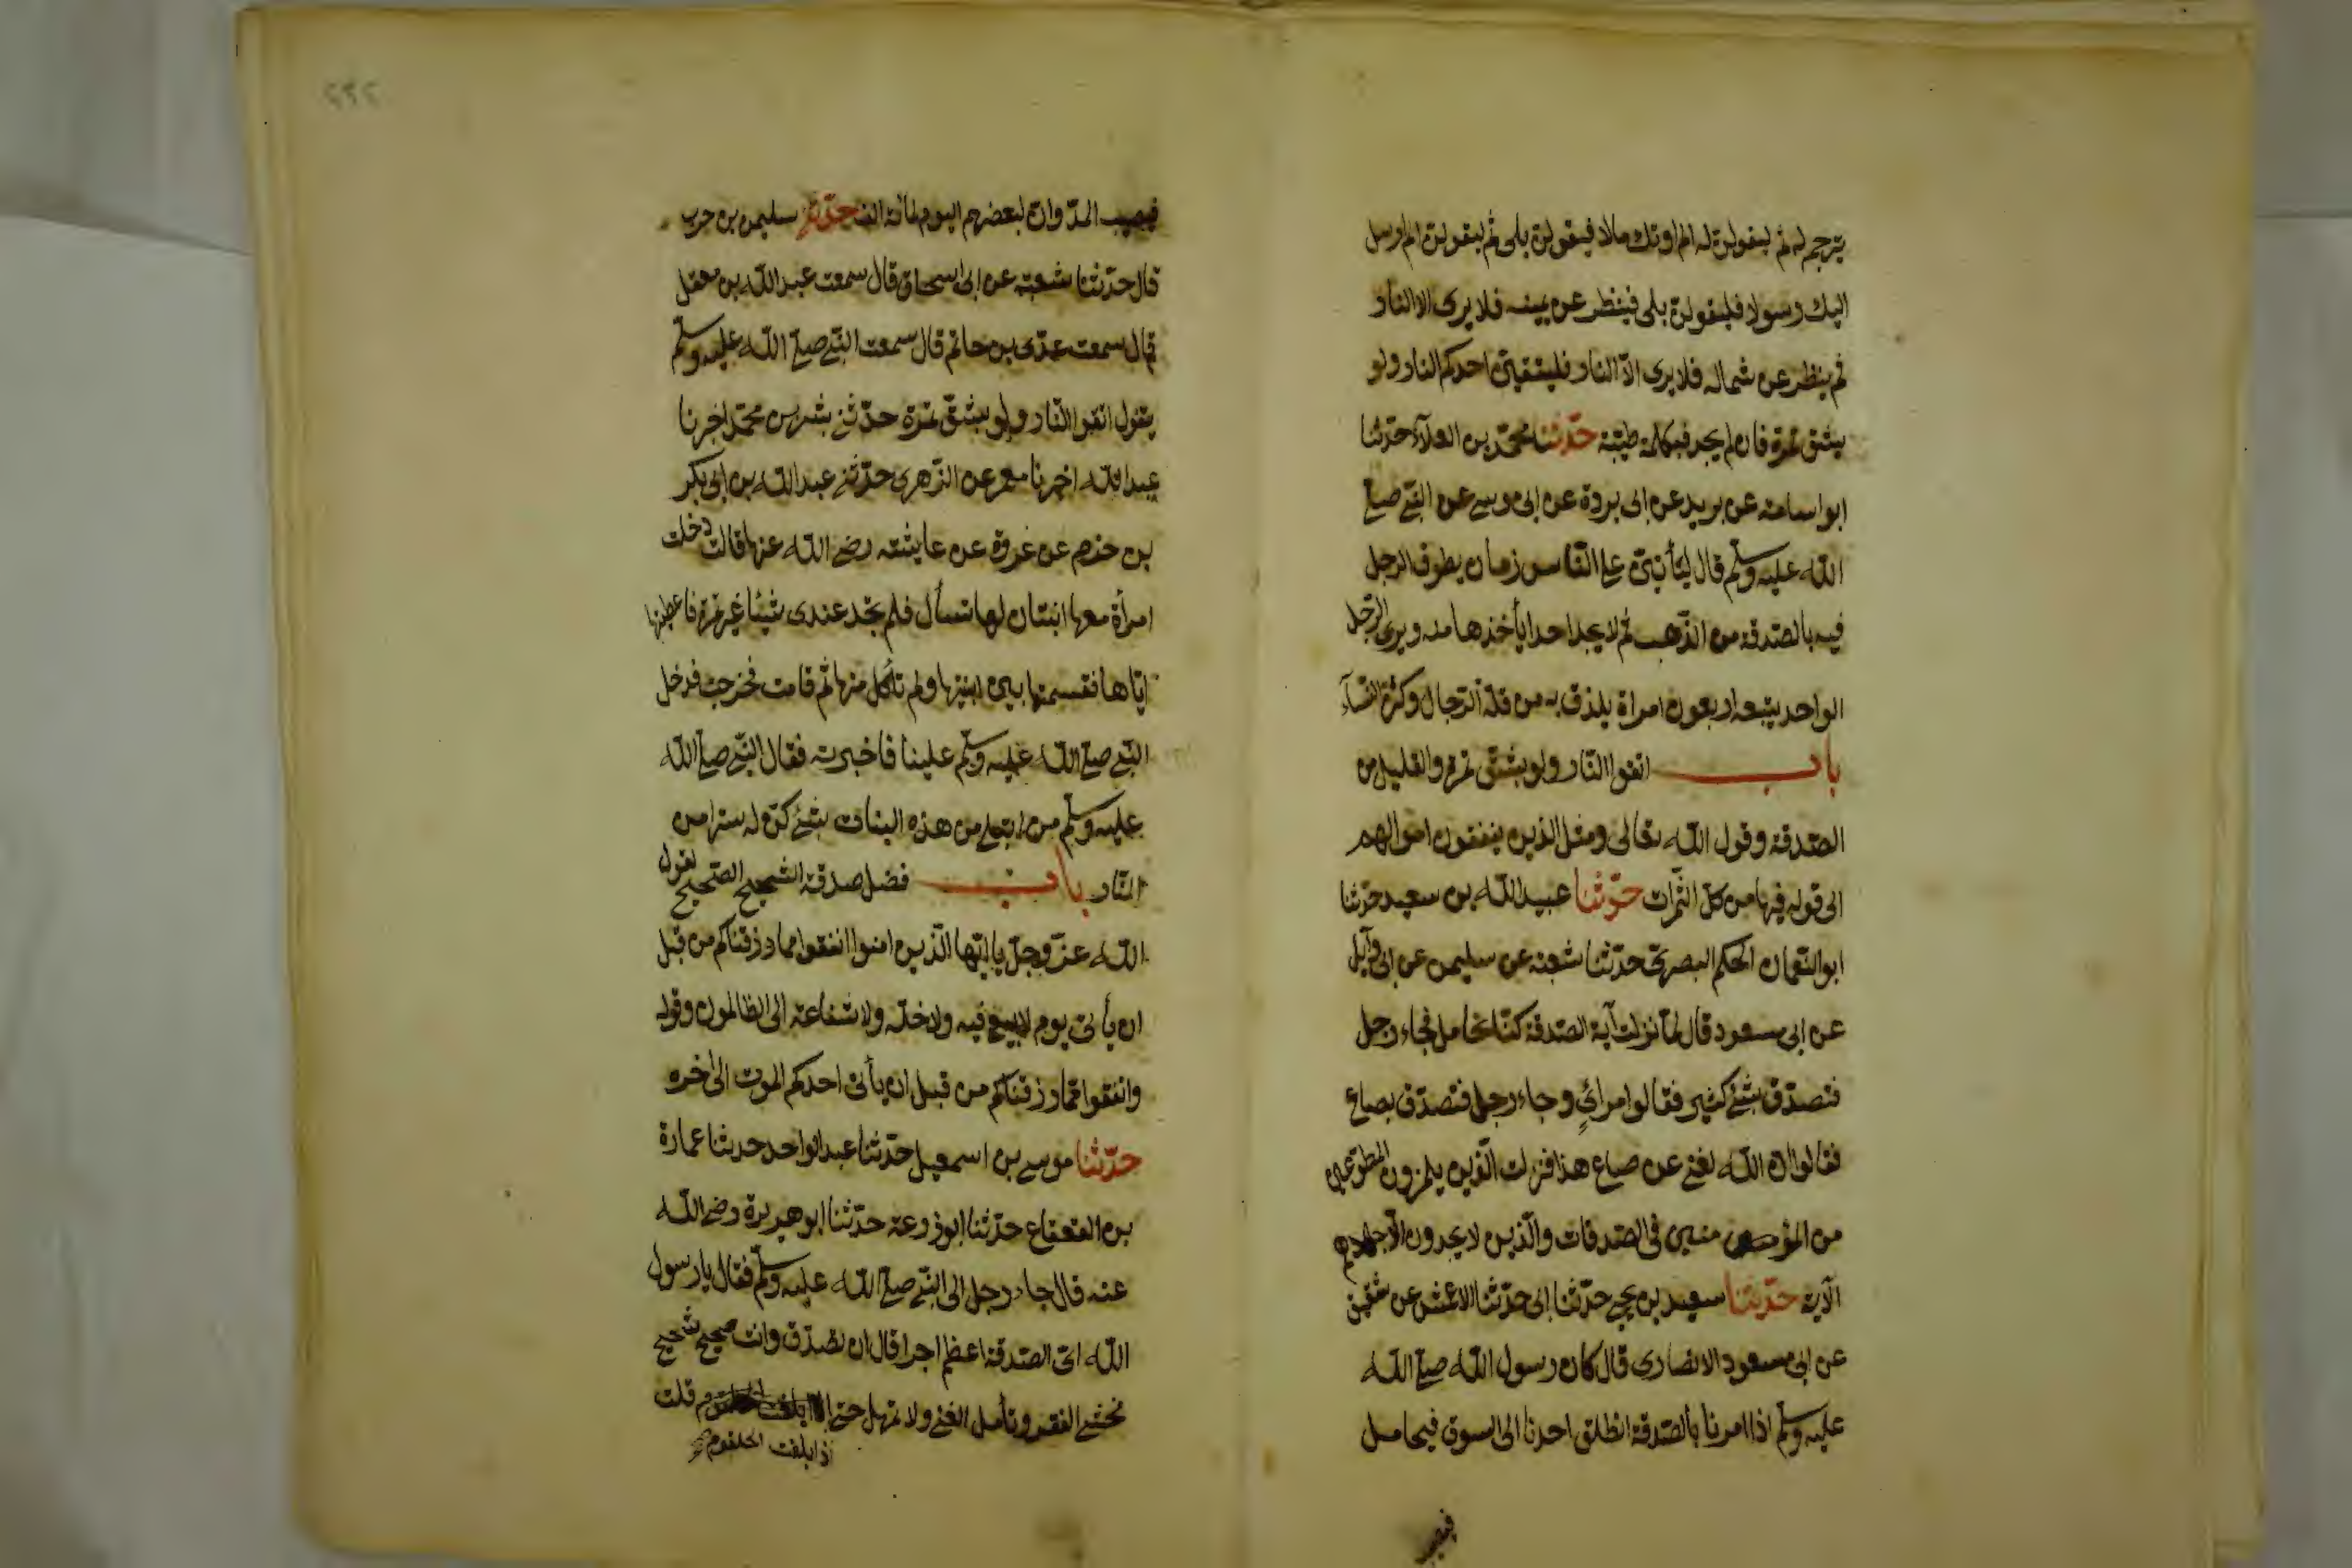 يترجم له ثم ليقولن له الم اوتك مالا فيقولن بلى ثم ليقولن الم ارسل
اليك رسولا فليقولن بلى فينظر عن يمينه فلا يرى الا النار
ثم ينظر عن شماله فلا يرى الّا النار فليتقينّ احدكم النار ولو
بشق تمرة فان لم يجد فبكلمة طيّبة حدّثنا محمّد بن العلآء حدّثنا
ابو اسامة عن بريد عن ابى بردة عن ابى موسى عن النّبى صلى
اللّه عليه وسلّم قال ليأتينّ على النّاس زمان يطوف الرجل
فيه بالصّدقة من الذّهب ثم لا يجد احدا يأخذها منه ويرى الرّجل
الواحد يتبعه اربعون امراة يلذن به من قلّة الرّجال وكثرة النّسآء
باب اتقوا النّار ولو بشقّ تمرة والقليل من
الصّدقة وقول اللّه تعالى ومثل الذين ينفقون اموالهم
الى قوله فيها من كلّ الثّمرات حدّثنا عبيد اللّه بن سعيد حدّثنا
ابو النّعمان الحكم البصرىّ حدّثنا شعبة عن سليمن عن ابى وآيل
عن ابى مسعود قال لمّا نزلت آية الصّدقة كنّا نحامل فجاء رجل
فتصدّق بشئ كثير فقالوا مرائي وجاء رجل فتصدّق بصاع
فقالوا انّ اللّه لغنى عن صاع هذا فنزلت الّذين يلمزون المطوّعين
من المؤمنين فى الصّدقات والّذين لا يجدون الّا جهدهم
الآية حدّثنا سعيد بن يحيى حدّثنا ابى حدّثنا الاعمش عن شقيق
عن ابى مسعود الانصارى قال كان رسول اللّه صلى اللّه
عليه وسلّم اذا امرنا بالصّدقة انطلق احدنا الى السوق فيحامل
فيصيب
٢٢٢
فيصيب المدّ وانّ لبعضهم اليوم لمائة الف حدّثنا سليمن بن حرب
قال حدّثنا شعبة عن ابى اسحاق قال سمعت عبد اللّه بن معقل
قال سمعت عدّى بن حاتم قال سمعت النّبى صلى اللّه عليه وسلّم
يقول اتقوا النّار ولو بشقّ تمرة حدّثنى بشر بن محمّد اخبرنا
عبد اللّه اخبرنا معمر عن الزّهرى حدّثنى عبد اللّه بن ابى بكر
بن حزم عن عروة عن عايشة رضى اللّه عنها قالت دخلت
امرأة معها ابنتان لها تسأل فلم تجد عندى شيئا غير تمرة فاعطيتها
ايّاها فقسمتها بين ابنتيها ولم تأكل منها ثم قامت فخرجت فدخل
النّبى صلى اللّه عليه وسلّم علينا فاخبرته فقال النّبى صلى اللّه
عليه وسلّم من ابتلى من هذه البنات بشئ كنّ له سترا من
النّار باب فضل صدقة الشّحيح الصّحيح لقول
اللّه عزّ وجلّ يا ايّها الّذين امنوا انفقوا مما رزقناكم من قبل
ان يأتى يوم لا بيع فيه ولا خلّة ولا شفاعة الى الظالمون وقوله
وانفقوا ممّا رزقناكم من قبل ان يأتى احدكم الموت الى اخره
حدّثنا موسى بن اسمعيل حدّثنا عبد الواحد حدثنا عمارة
بن القعقاع حدّثنا ابو زرعة حدّثنا ابو هريرة رضى اللّه
عنه قال جاء رجل الى النّبى صلى اللّه عليه وسلّم فقال يا رسول
اللّه اىّ الصّدقة اعظم اجرا قال ان تصّدّق وانت صحيح شحيح
تخشى الفقر وتأمل الغنى ولا تمهل حتى قلت
اذا بلغت الحلقوم